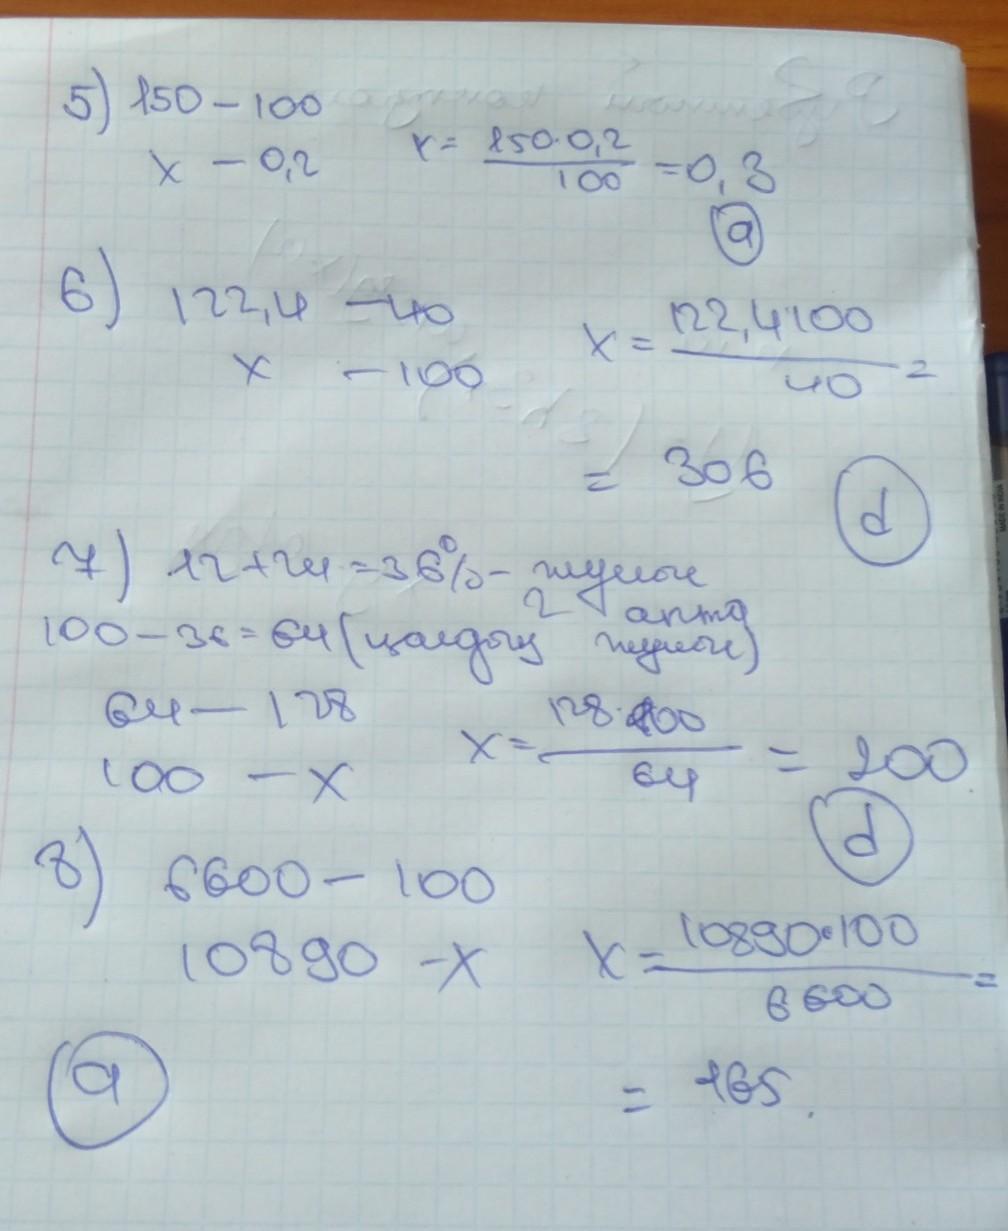 5) 150 - 100
x - 0,2 x = 150·0,2 / 100 = 0,3
a
6) 122,4 - 40
x - 100 x = 122,4·100 / 40 =
= 306
d
7) 12+24=36% - жұмыс
2 апта
100-36=64 (қалдық жұмыс)
64 - 128
100 - x x = 128·100 / 64 = 200
d
8) 6600 - 100
10890 - x x = 10890·100 / 6600 =
a
= 165.